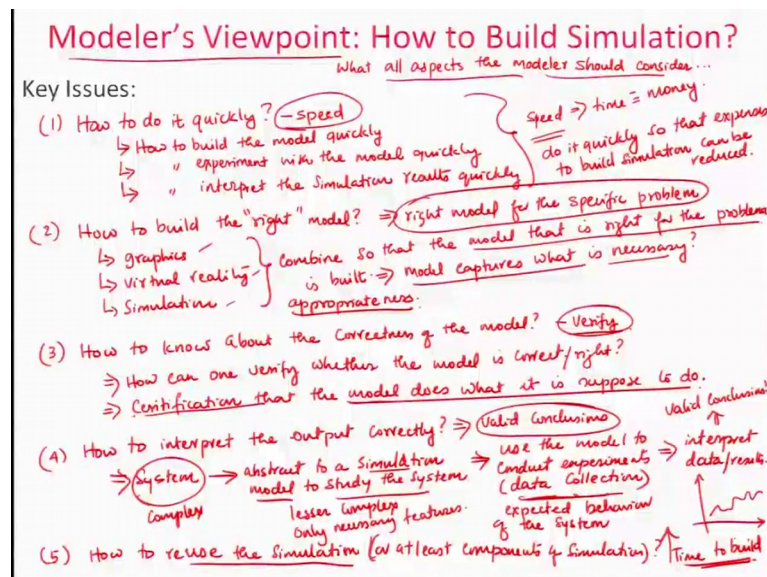 Modeler's Viewpoint: How to Build Simulation?
What all aspects the modeler should consider...
Key Issues:
(1) How to do it quickly? - speed
↳ How to build the model quickly
↳ " experiment with the model quickly
↳ " interpret the simulation results quickly
speed => time ≡ money.
do it quickly so that expenses
to build simulation can be
reduced.
(2) How to build the "right" model? => right model for the specific problem
↳ graphics
↳ virtual reality
↳ simulation
combine so that the model that is right for the problem
is built. => model captures what is necessary?
appropriateness.
(3) How to know about the correctness of the model? - verify
=> How can one verify whether the model is correct/right?
=> Ceritification that the model does what it is suppose to do.
(4) How to interpret the output correctly? => Valid Conclusions
=> System → abstract to a simulation
model to study the system
complex
lesser complex
only necessary features.
=> use the model to
conduct experiments
(data collection)
expected behavior
of the system
=> interpret
data/results.
valid conclusions
(5) How to reuse the simulation (or at least components of simulation)? ↑ Time to build